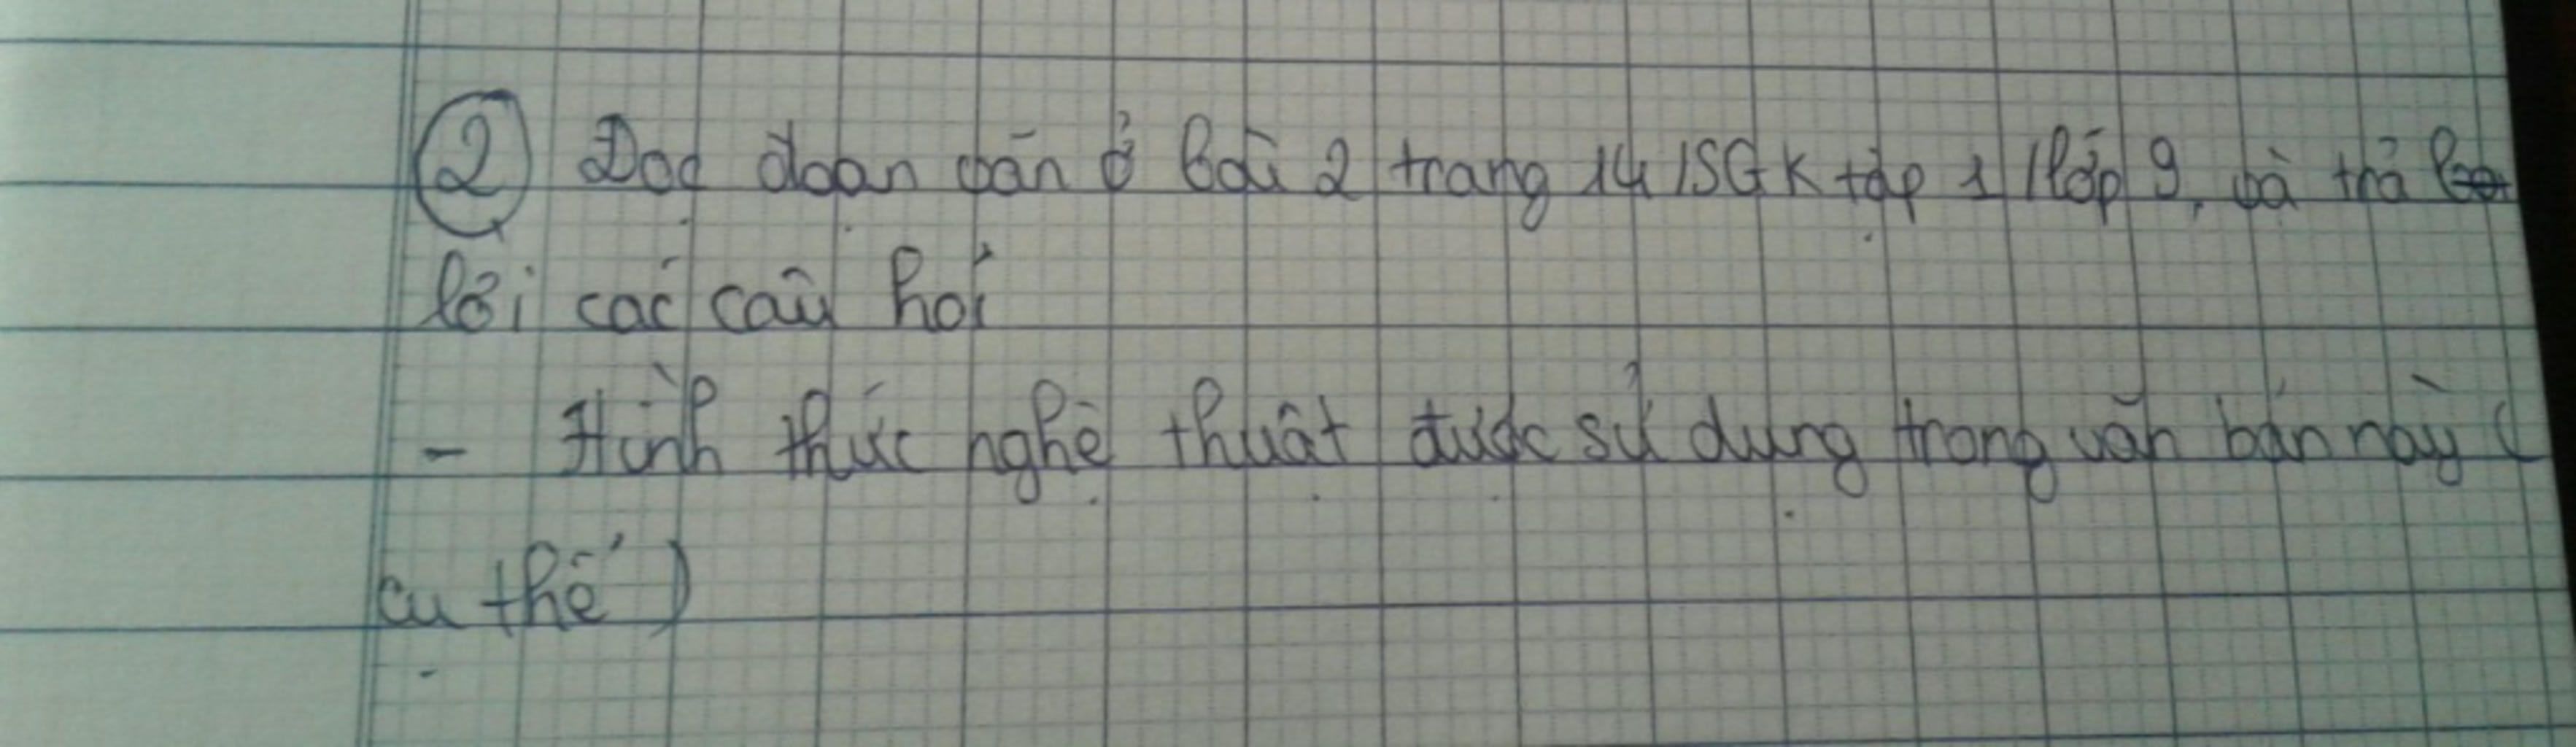 ② Đọc đoạn văn ở bài 2 trang 14 SGK tập 1 lớp 9, và trả
lời các câu hỏi
- Hình thức nghệ thuật được sử dụng trong văn bản này (
cụ thể )